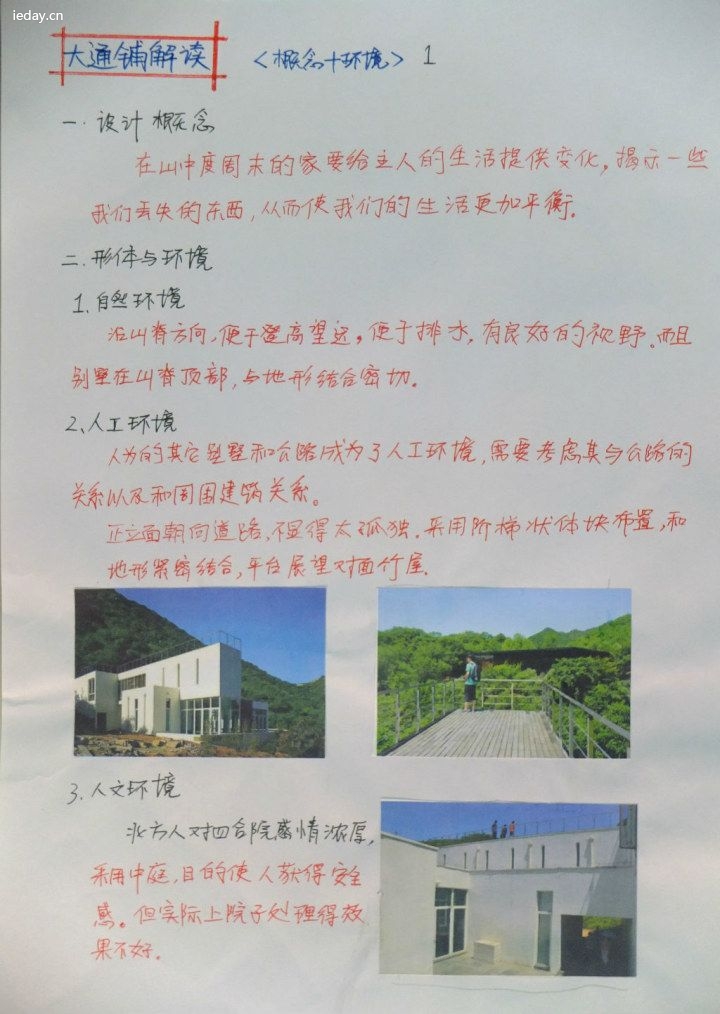 ieday.cn
大通铺解读 <概念+环境> 1
一. 设计概念
在山中度周末的家要给主人的生活提供变化,揭示一些
我们丢失的东西,从而使我们的生活更加平衡.
二.形体与环境
1.自然环境
沿山脊方向,便于登高望远。便于排水,有良好的视野.而且
别墅在山脊顶部,与地形结合密切。
2、人工环境
人为的其它别墅和公路成为了人工环境,需要考虑其与公路的
关系以及和周围建筑关系。
正立面朝向道路,不显得太孤独.采用阶梯状体块布置,和
地形紧密结合,平台展望对面竹屋.
3.人文环境
北方人对四合院感情浓厚,
采用中庭,目的使人获得安全
感。但实际上院子处理得效
果不好.